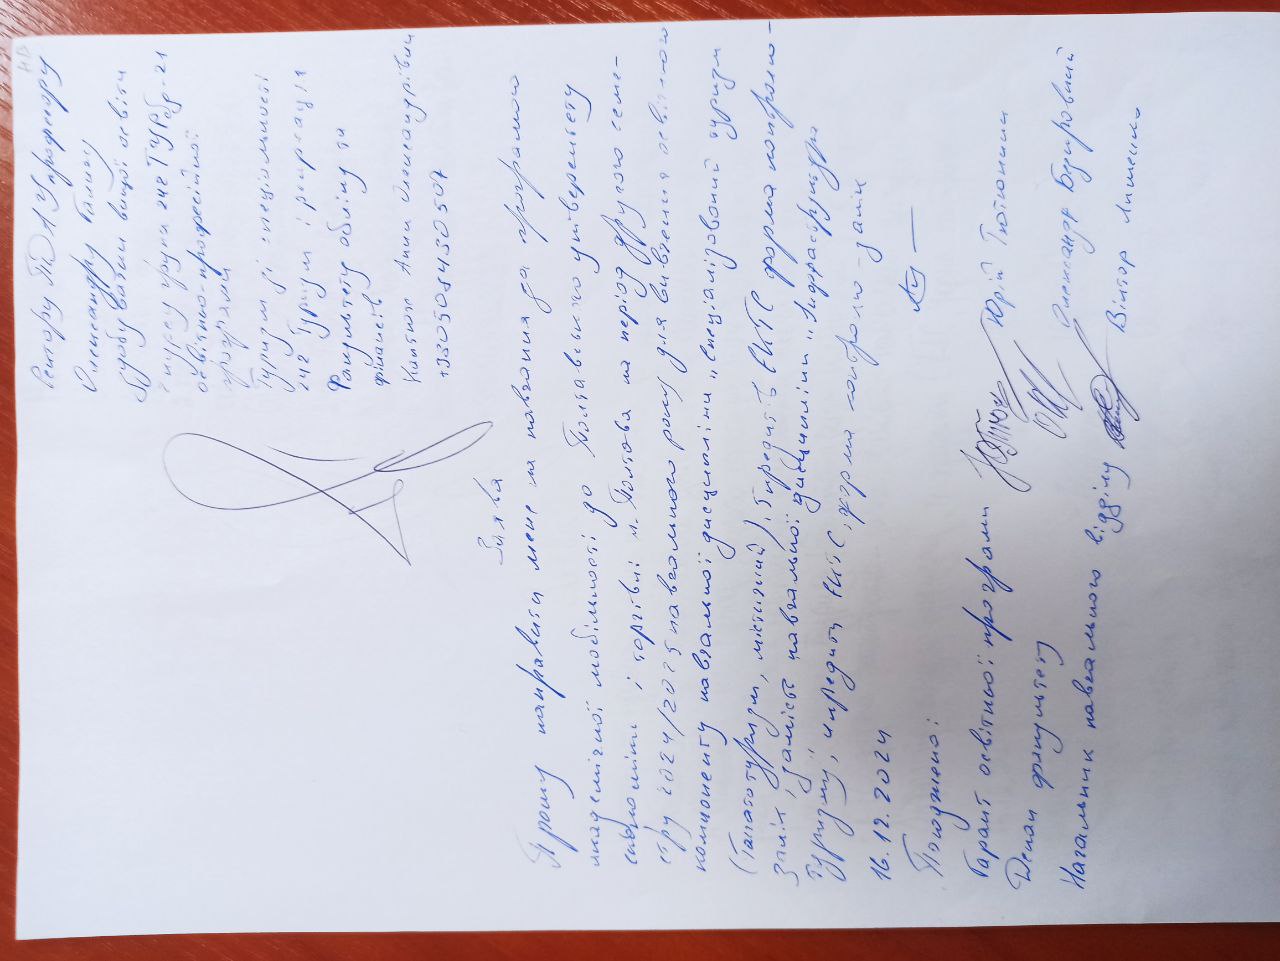 Ректору ПДАУ професору
Олександру Галичу
здобувачки вищої освіти
2 курсу група 242 ТУРбд-21
освітньо-професійної
програми
Туризм зі спеціальності
242 Туризм і рекреація
Факультету обліку та
фінансів
Анни Олександрівни
Заява
Прошу направити мене на навчання за програмою
академічної мобільності до Полтавського університету
економіки і торгівлі м. Полтава на період другого семе-
стру 2024/2025 навчального року для вивчення освітнього
компоненту навчальної дисципліни „Спеціалізований туризм
(Танатотуризм, містичний), 5 кредитів ЄКТС форма контролю-
залік, замість навчальної дисципліни „Інфраструктура
туризму", 4 кредити ЄКТС, форма контролю-залік
16.12.2024
Погоджено:
Гарант освітньої програми Юрій Тютюнник
Декан факультету Олександр Безкровний
Начальник навчального відділу Віктор Ляшенко